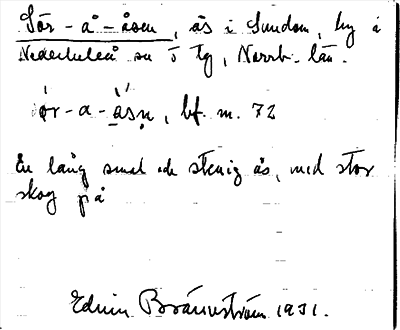 Sör-å-åsen, ås i Sundom, by i
Nederluleå sn J tg, Norrb. län.
ǿr-a-åsṇ, bf. m. 72
En lång smal och stenig ås, med stor
skog på
Edvin Brännström 1931.